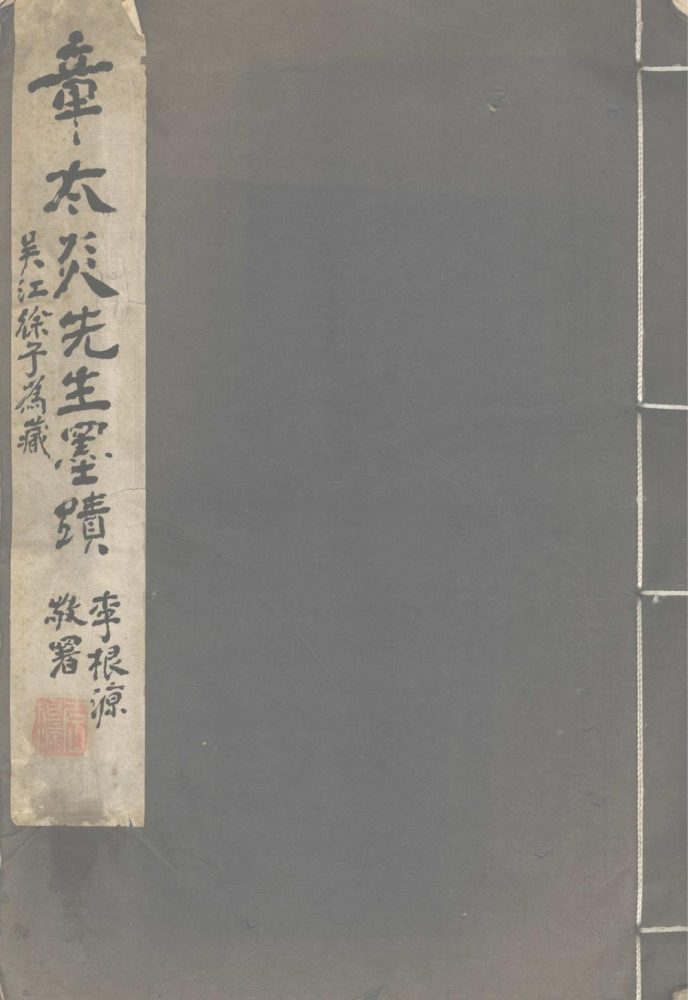 章太炎先生墨蹟
吳江徐子為藏
李根源
敬署